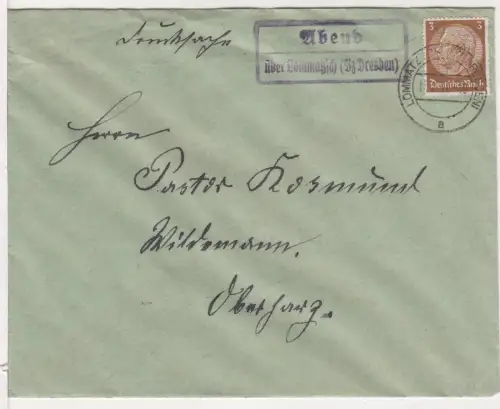 Drucksache
Abend
über Lommatzsch (Bz Dresden)
3 3
Deutsches Reich
LOMMATZSCH
a
Herrn
Pastor Kosmünd
Wildemann.
Oberharz.